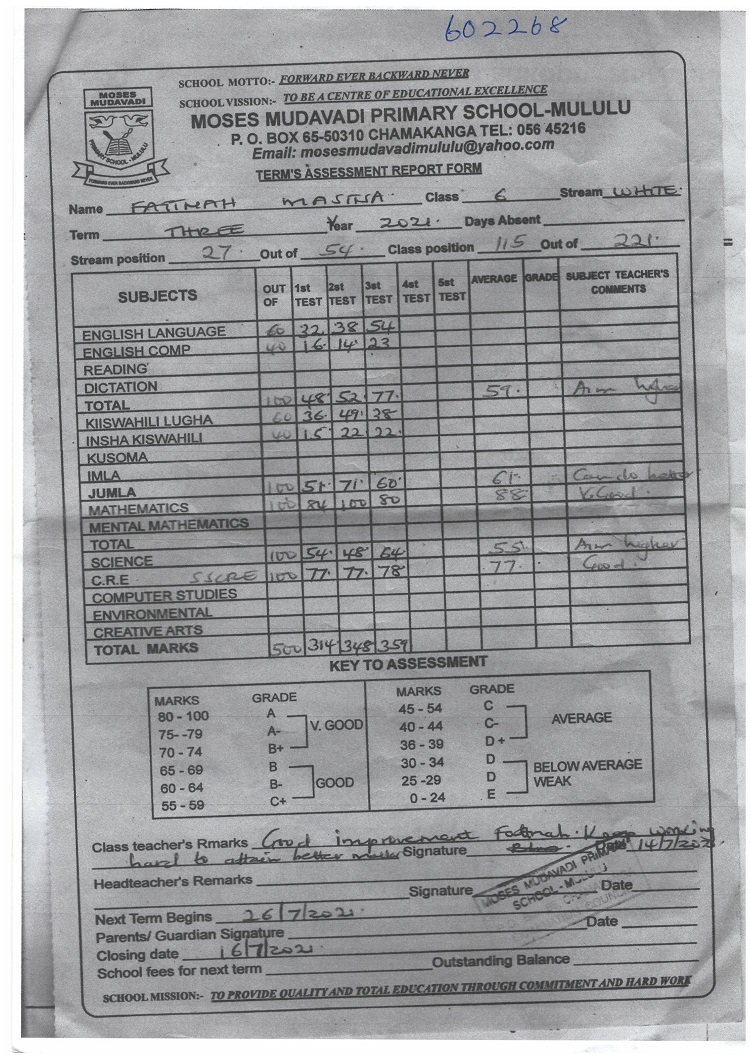 602268
SCHOOL MOTTO:- FORWARD EVER BACKWARD NEVER
SCHOOL VISSION:- TO BE A CENTRE OF EDUCATIONAL EXCELLENCE
MOSES MUDAVADI PRIMARY SCHOOL-MULULU
P. O. BOX 65-50310 CHAMAKANGA TEL: 056 45216
Email: mosesmudavadimululu@yahoo.com
TERM'S ASSESSMENT REPORT FORM
MOSES MUDAVADI
PRIMARY SCHOOL - MULULU
FORWARD EVER BACKWARD NEVER
Name FATINAH Class 6 Stream WHITE.
Term THREE Year 2021. Days Absent
Stream position 27. Out of 54. Class position 115 Out of 221.
SUBJECTS OUT OF 1st TEST 2st TEST 3st TEST 4st TEST 5st TEST AVERAGE GRADE SUBJECT TEACHER'S COMMENTS
ENGLISH LANGUAGE 60 32 38 54
ENGLISH COMP 40 16 14 23
READING
DICTATION
TOTAL 100 48 52 77 59. Aim higher
KIISWAHILI LUGHA 60 36 49 38
INSHA KISWAHILI 40 15 22 22
KUSOMA
IMLA
JUMLA 100 51 71 60 61. Can do better
MATHEMATICS 100 84 100 80 88 V.Good.
MENTAL MATHEMATICS
TOTAL
SCIENCE 100 54 48 64 55. Aim higher
C.R.E SSCRE 100 77 77 78 77. Good.
COMPUTER STUDIES
ENVIRONMENTAL
CREATIVE ARTS
TOTAL MARKS 500 314 348 359
KEY TO ASSESSMENT
MARKS GRADE MARKS GRADE
80 - 100 A 45 - 54 C
75- -79 A- V. GOOD 40 - 44 C- AVERAGE
70 - 74 B+ 36 - 39 D+
65 - 69 B 30 - 34 D BELOW AVERAGE
60 - 64 B- GOOD 25 -29 D WEAK
55 - 59 C+ 0 - 24 E
Class teacher's Rmarks Good improvement Fatinah. Keep working
hard to attain better marks Signature 14/7/2021.
Headteacher's Remarks
Signature Date
MOSES MUDAVADI PRIMARY
SCHOOL - MULULU
Next Term Begins 26/7/2021.
Parents/ Guardian Signature Date
Closing date 16/7/2021.
School fees for next term Outstanding Balance
SCHOOL MISSION:- TO PROVIDE QUALITY AND TOTAL EDUCATION THROUGH COMMITMENT AND HARD WORK